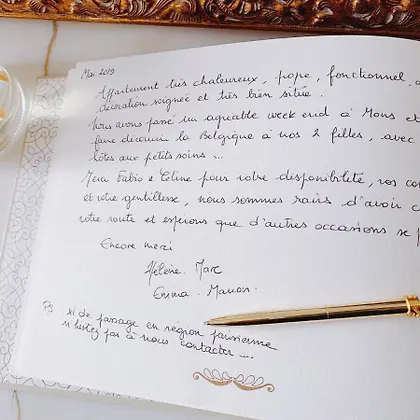 Mai 2019
Appartement très chaleureux, propre, fonctionnel,
décoration soignée et très bien située.
Nous avons passé un agréable week end à Mons et
faire découvrir la Belgique à nos 2 filles, avec
hôtes aux petits soins ...
Merci Fabio e Céline pour votre disponibilité, vos
et votre gentillesse, nous sommes ravis d'avoir
votre route et espérons que d'autres occasions se
Encore merci
Hélène. Marc
Emma. Manon.
PS si de passage en région parisienne
n'hésitez pas à nous contacter ....